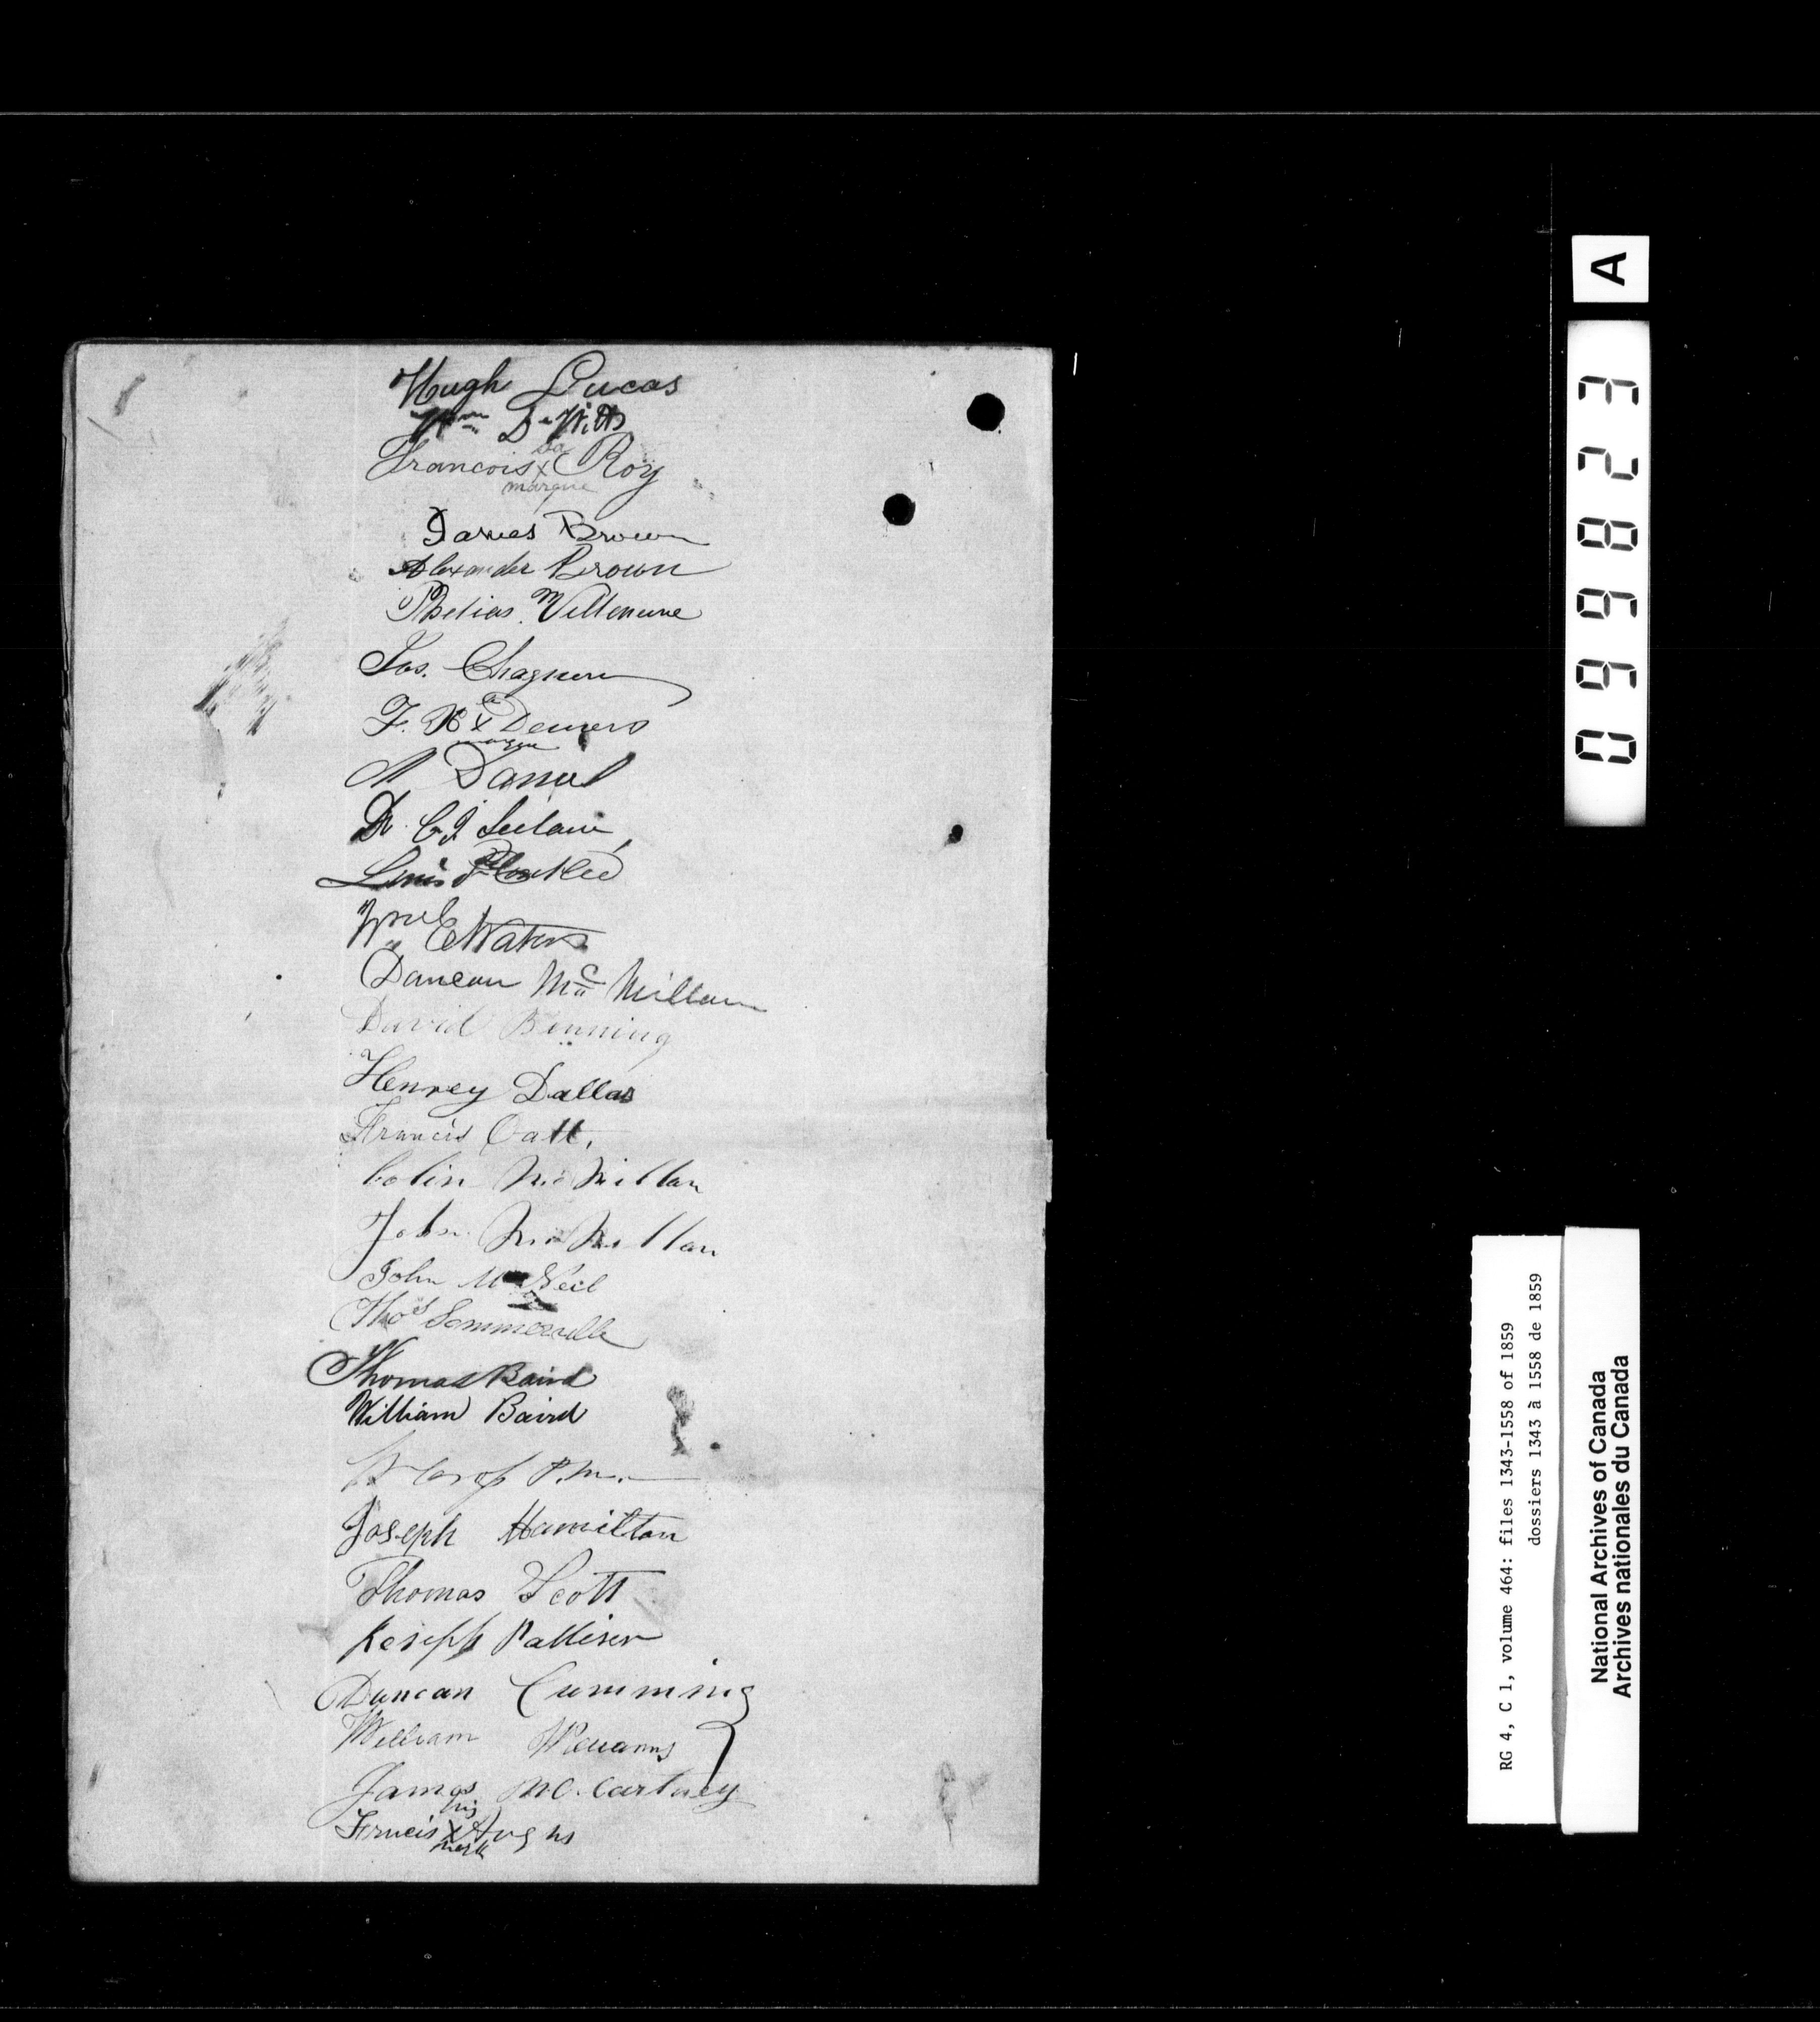 Hugh Lucas
Wm DeWitt
sa
Francois x Roy
marque
James Brown
Alexander Brown
Phelias Villeneuve
Jos. Chagnon
F. X x Demers
A Daniel
Dr.
Louis
E Waters
Duncan Mc Millan
David Benning
Henrey Dallas
Francis Catt.
Colin McMillan
John McMillan
John Mc Neil
Thos Sommerville
Thomas Baird
William Baird
P.M.
Joseph Hamilton
Thomas Scott
Joseph Palliser
Duncan Cumming
William Williams
James Mc.Cartney
his
x
mark
A
099823
RG 4, C 1, volume 464: files 1343-1558 of 1859
dossiers 1343 à 1558 de 1859
National Archives of Canada
Archives nationales du Canada